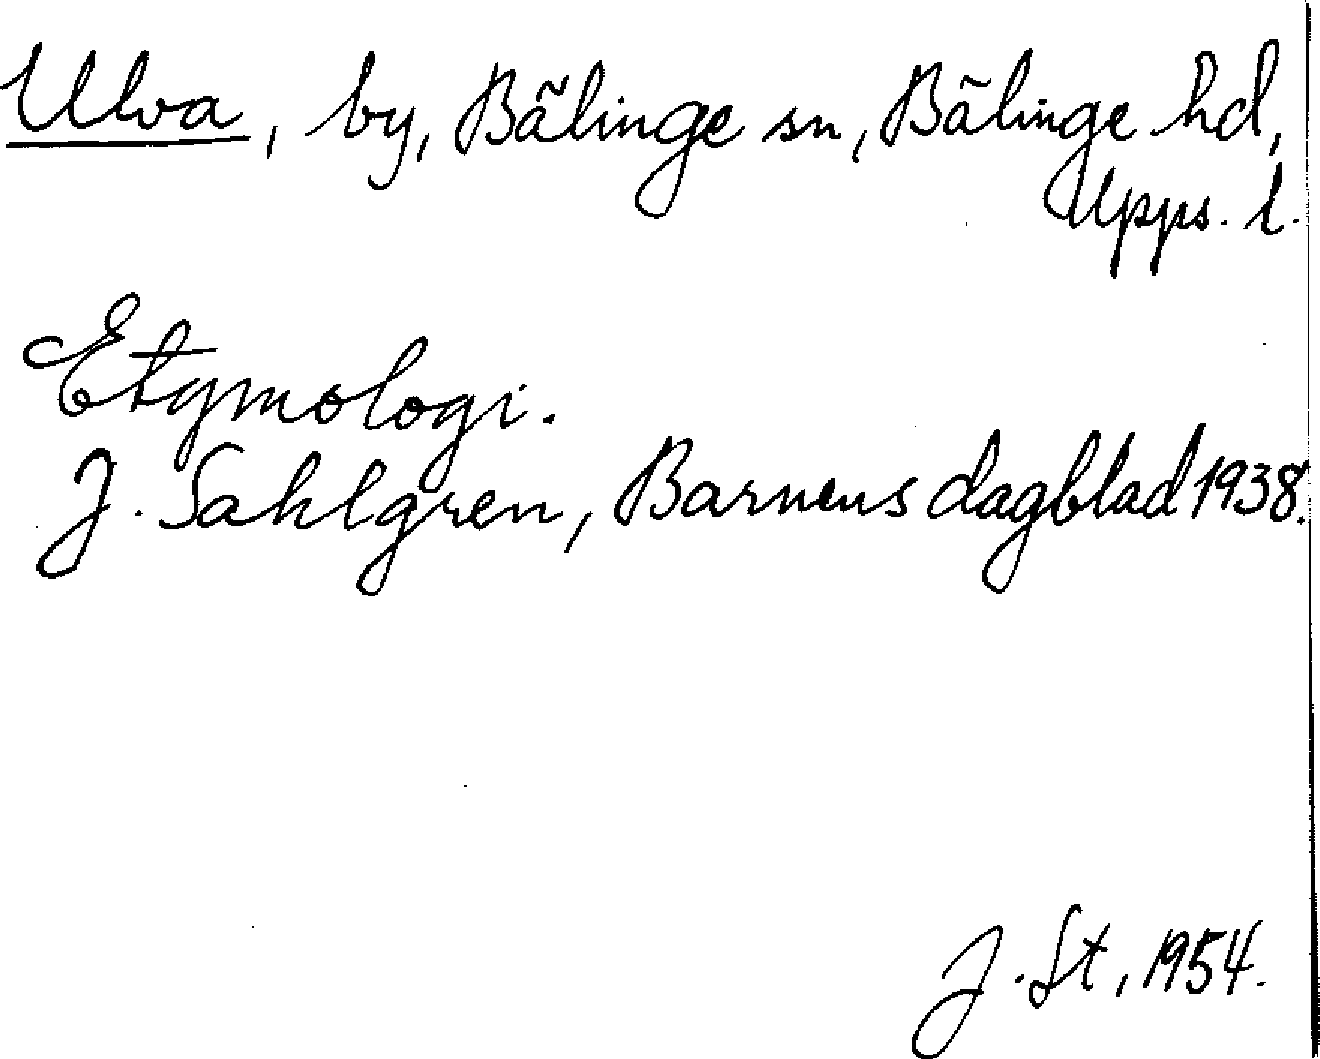 Ulva, by, Bälinge sn, Bälinge hd,
Upps. l.
Etymologi.
J. Sahlgren, Barnens dagblad 1938.
J. St, 1954.